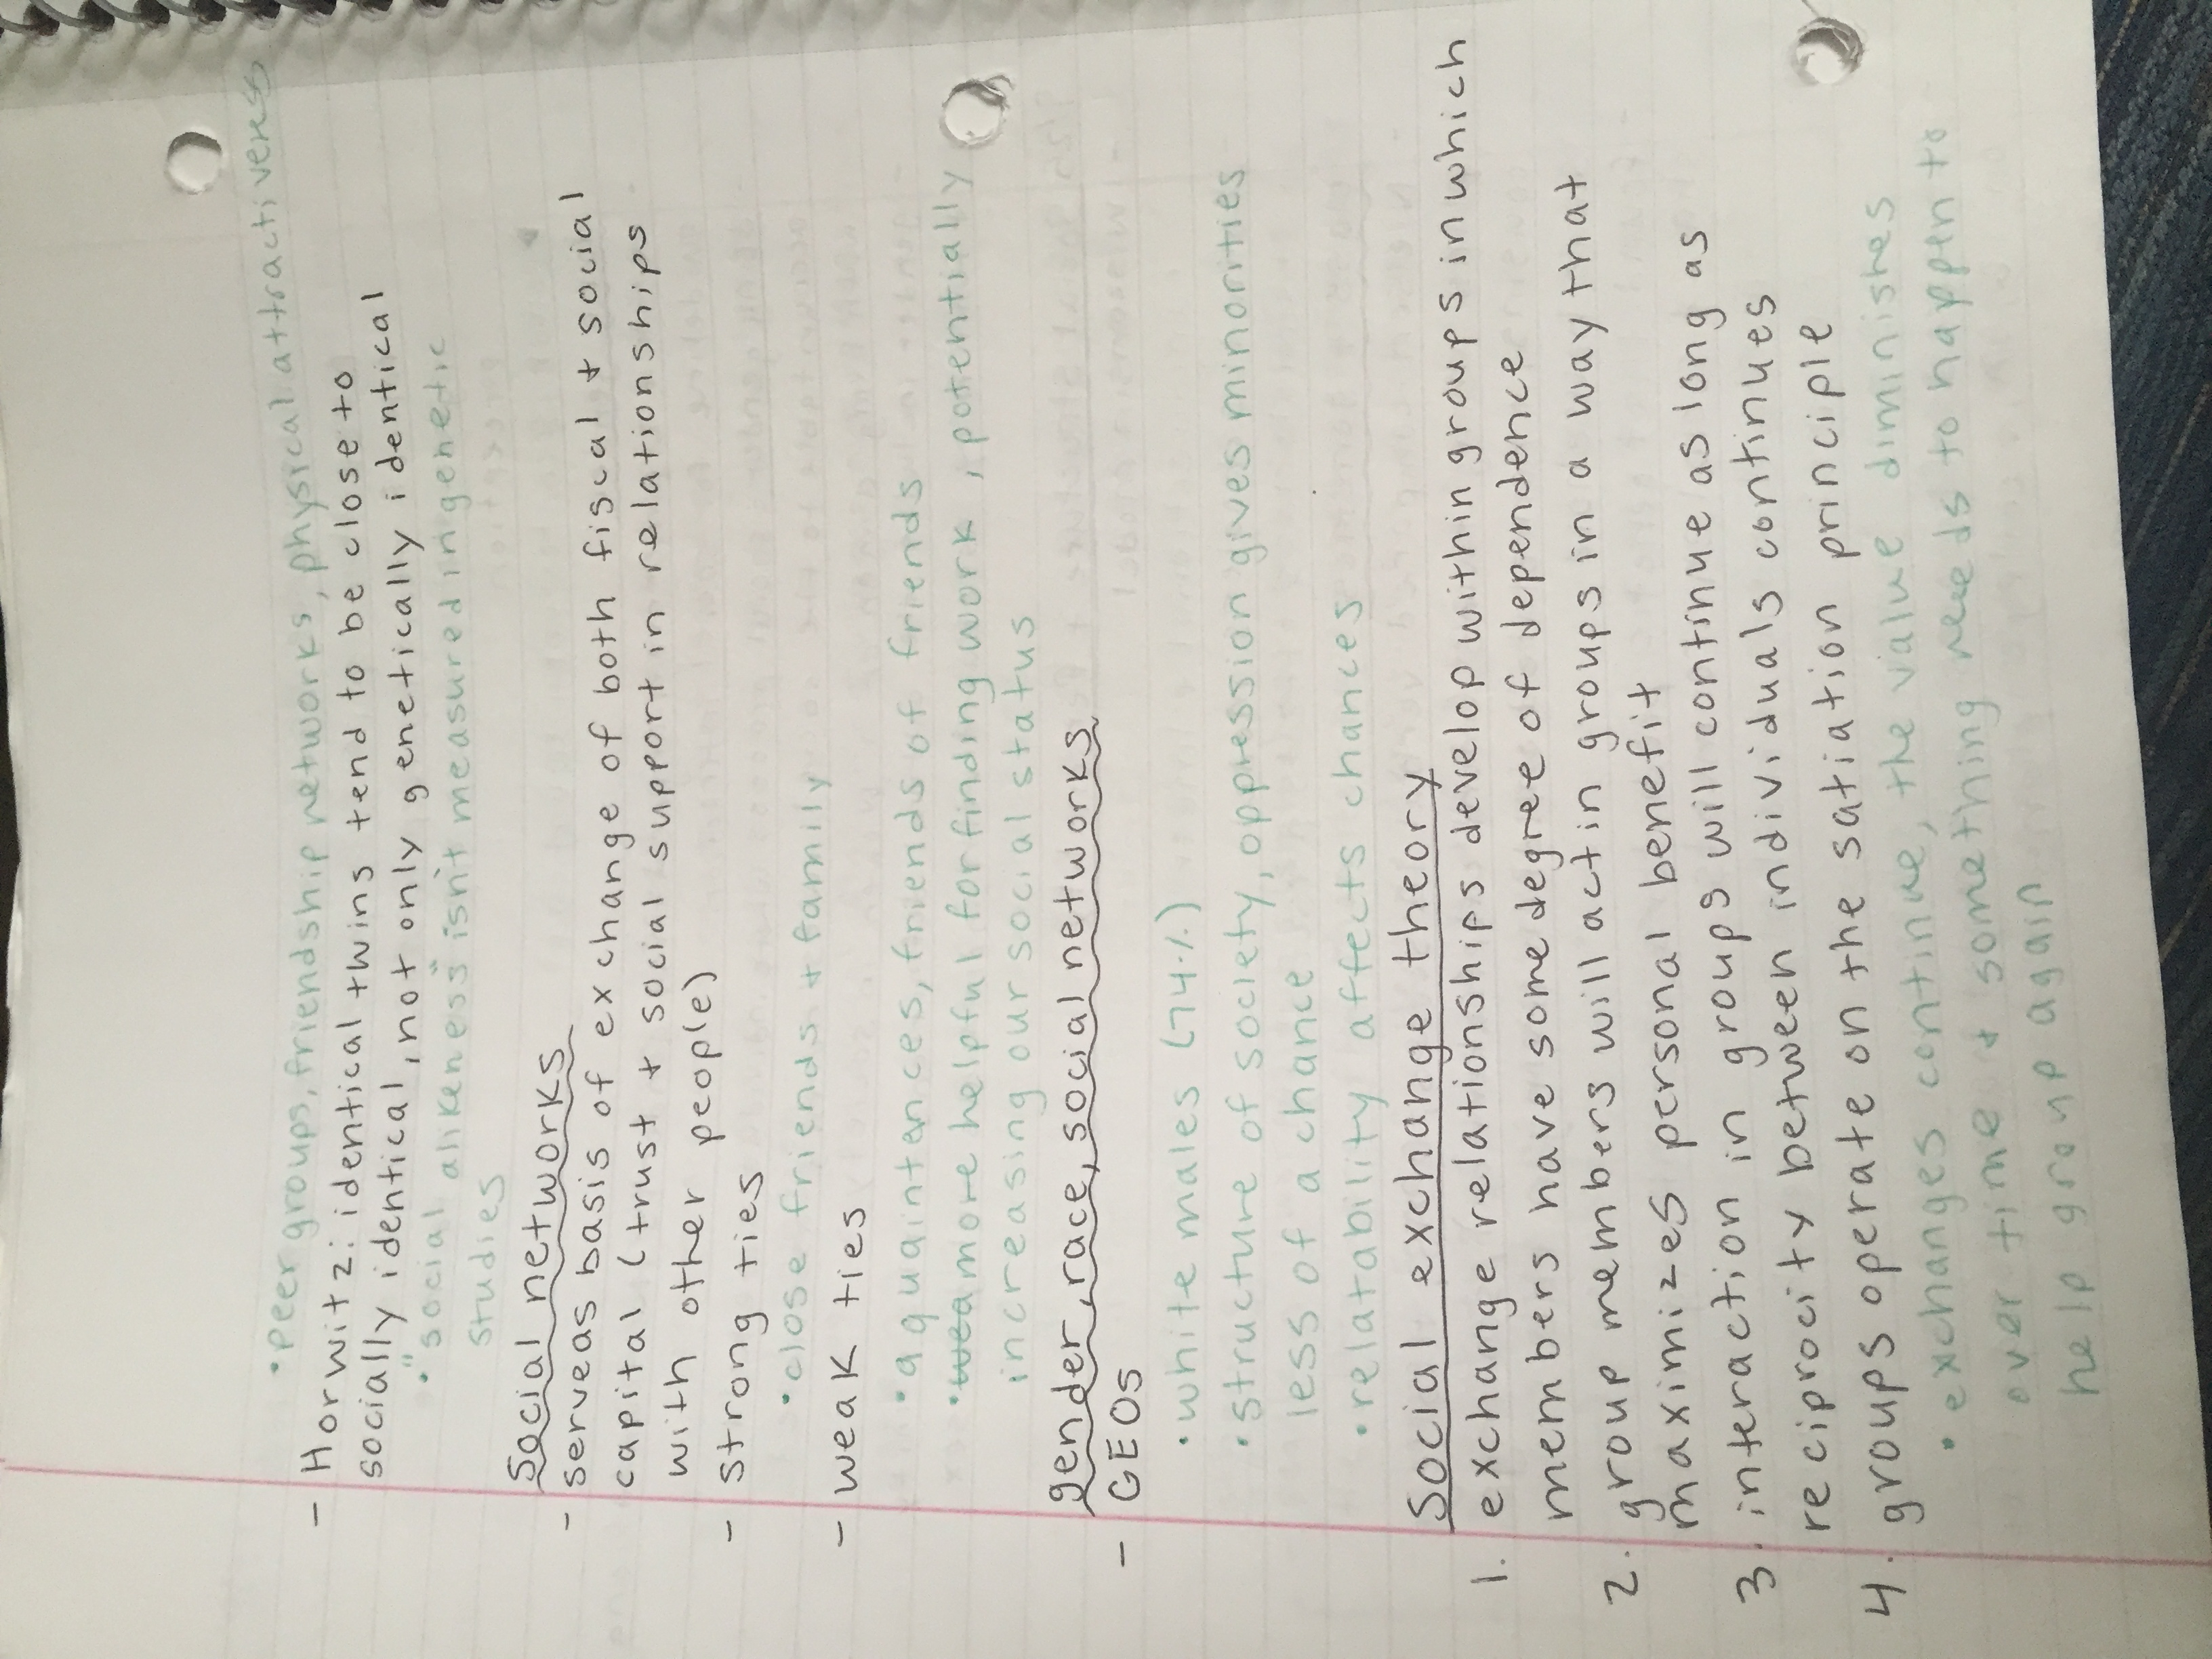 • peer groups, friendship networks, physical attractiveness
- Horwitz: identical twins tend to be close to
socially identical, not only genetically identical
• "social alikeness" isn't measured in genetic
studies
social networks
- serve as basis of exchange of both fiscal + social
capital (trust + social support in relationships
with other people)
- strong ties
• close friends + family
- weak ties
• aquaintences, friends of friends
• more helpful for finding work, potentially
increasing our social status
gender, race, social networks
- CEOs
• white males (74%)
• structure of society, oppression gives minorities
less of a chance
• relatability affects chances
social exchange theory
1. exchange relationships develop within groups in which
members have some degree of dependence
2. group members will act in groups in a way that
maximizes personal benefit
3. interaction in groups will continue as long as
reciprocity between individuals continues
4. groups operate on the satiation principle
• exchanges continue, the value diminishes
over time + something needs to happen to
help group again